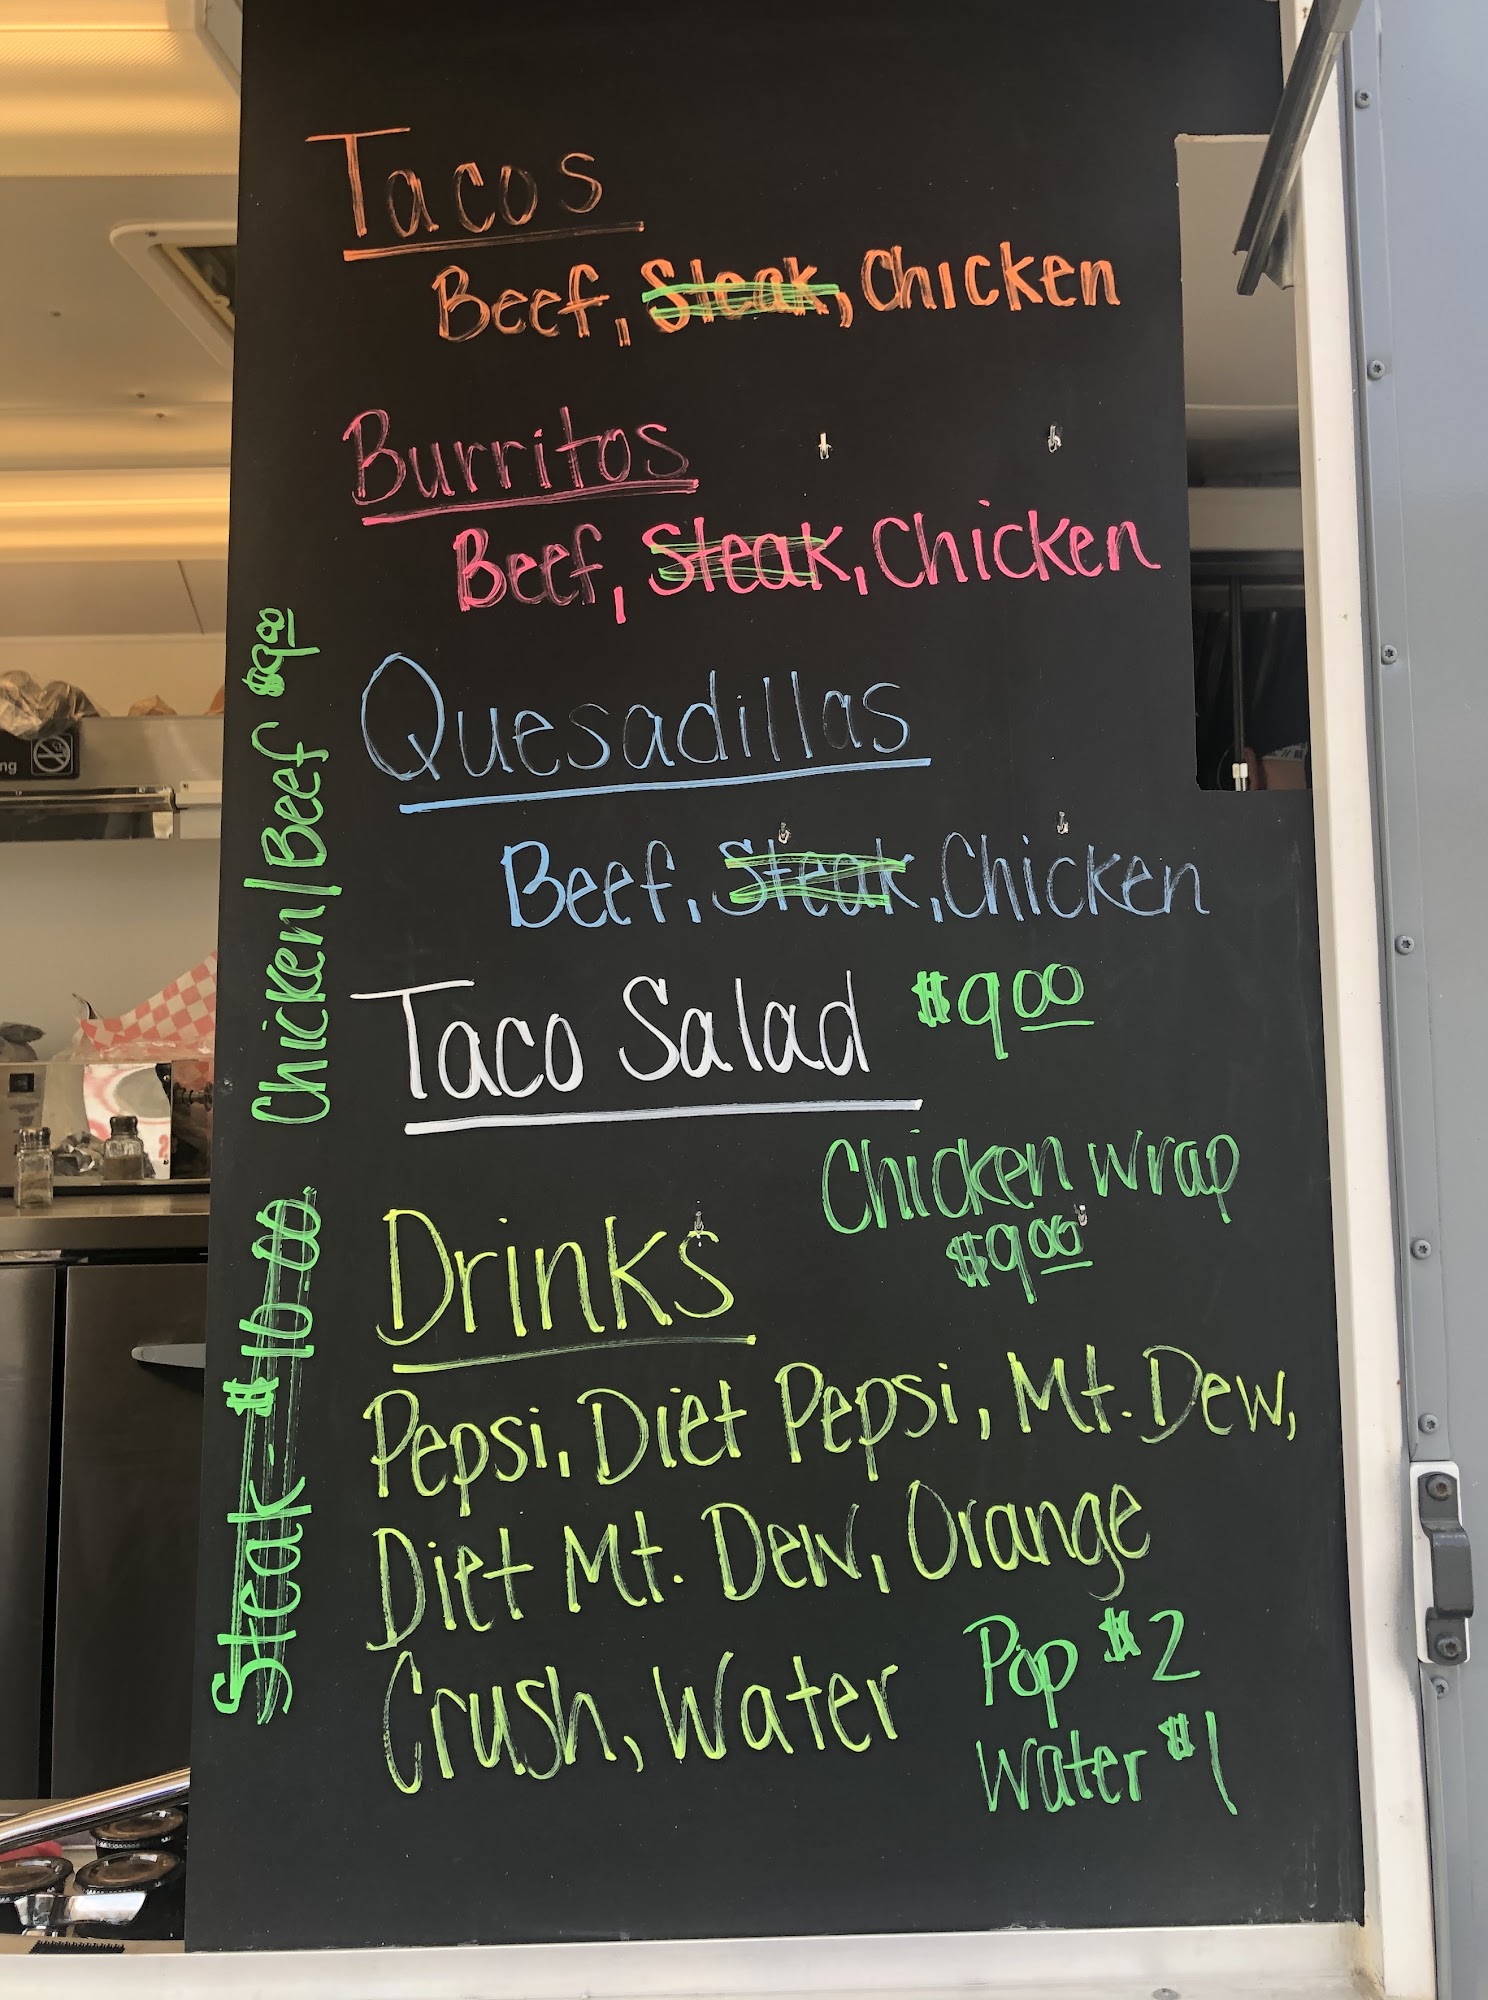 Tacos
Beef, Steak, Chicken
Burritos
Beef, Steak, Chicken
Quesadillas
Beef, Steak, Chicken
Taco Salad $9.00
Chicken wrap
$9.00
Drinks
Pepsi, Diet Pepsi, Mt. Dew,
Diet Mt. Dew, Orange
Crush, Water
Pop $2
Water $1
Steak - $10.00 Chicken/Beef $9.00